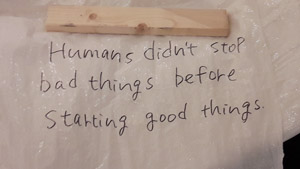 Humans didn't stop
bad things before
starting good things.